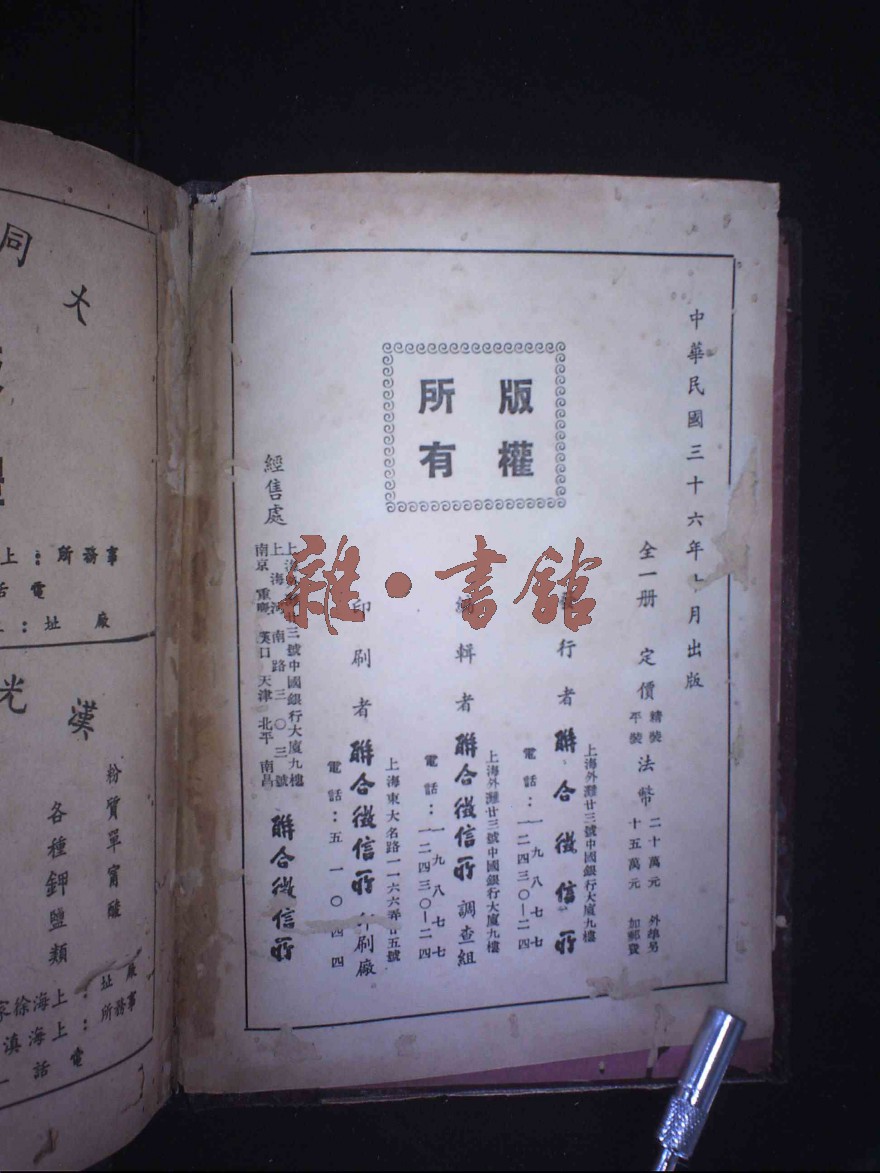 中華民國三十六年 月出版
全一册 定價 精裝 法幣 二十萬元 外埠另
平裝 十五萬元 加郵費
版權
所有
發行者 聯合徵信所
上海外灘廿三號中國銀行大廈九樓
電話：一九八七七
一二四三〇—二四
編輯者 聯合徵信所調查組
上海外灘廿三號中國銀行大廈九樓
電話：一九八七七
一二四三〇—二四
印刷者 聯合徵信所印刷廠
上海東大名路一一六六弄廿五號
電話：五一〇四四
經售處
上海外灘廿三號中國銀行大廈九樓
上海河南路三〇三號
南京 重慶 漢口 天津 北平 南昌
聯合徵信所
雜·書館
大同
事務所：上
電話
廠址：
漢光
粉質單甯酸
各種鉀鹽類
廠址：上海徐家
事務所：上海滇
電話